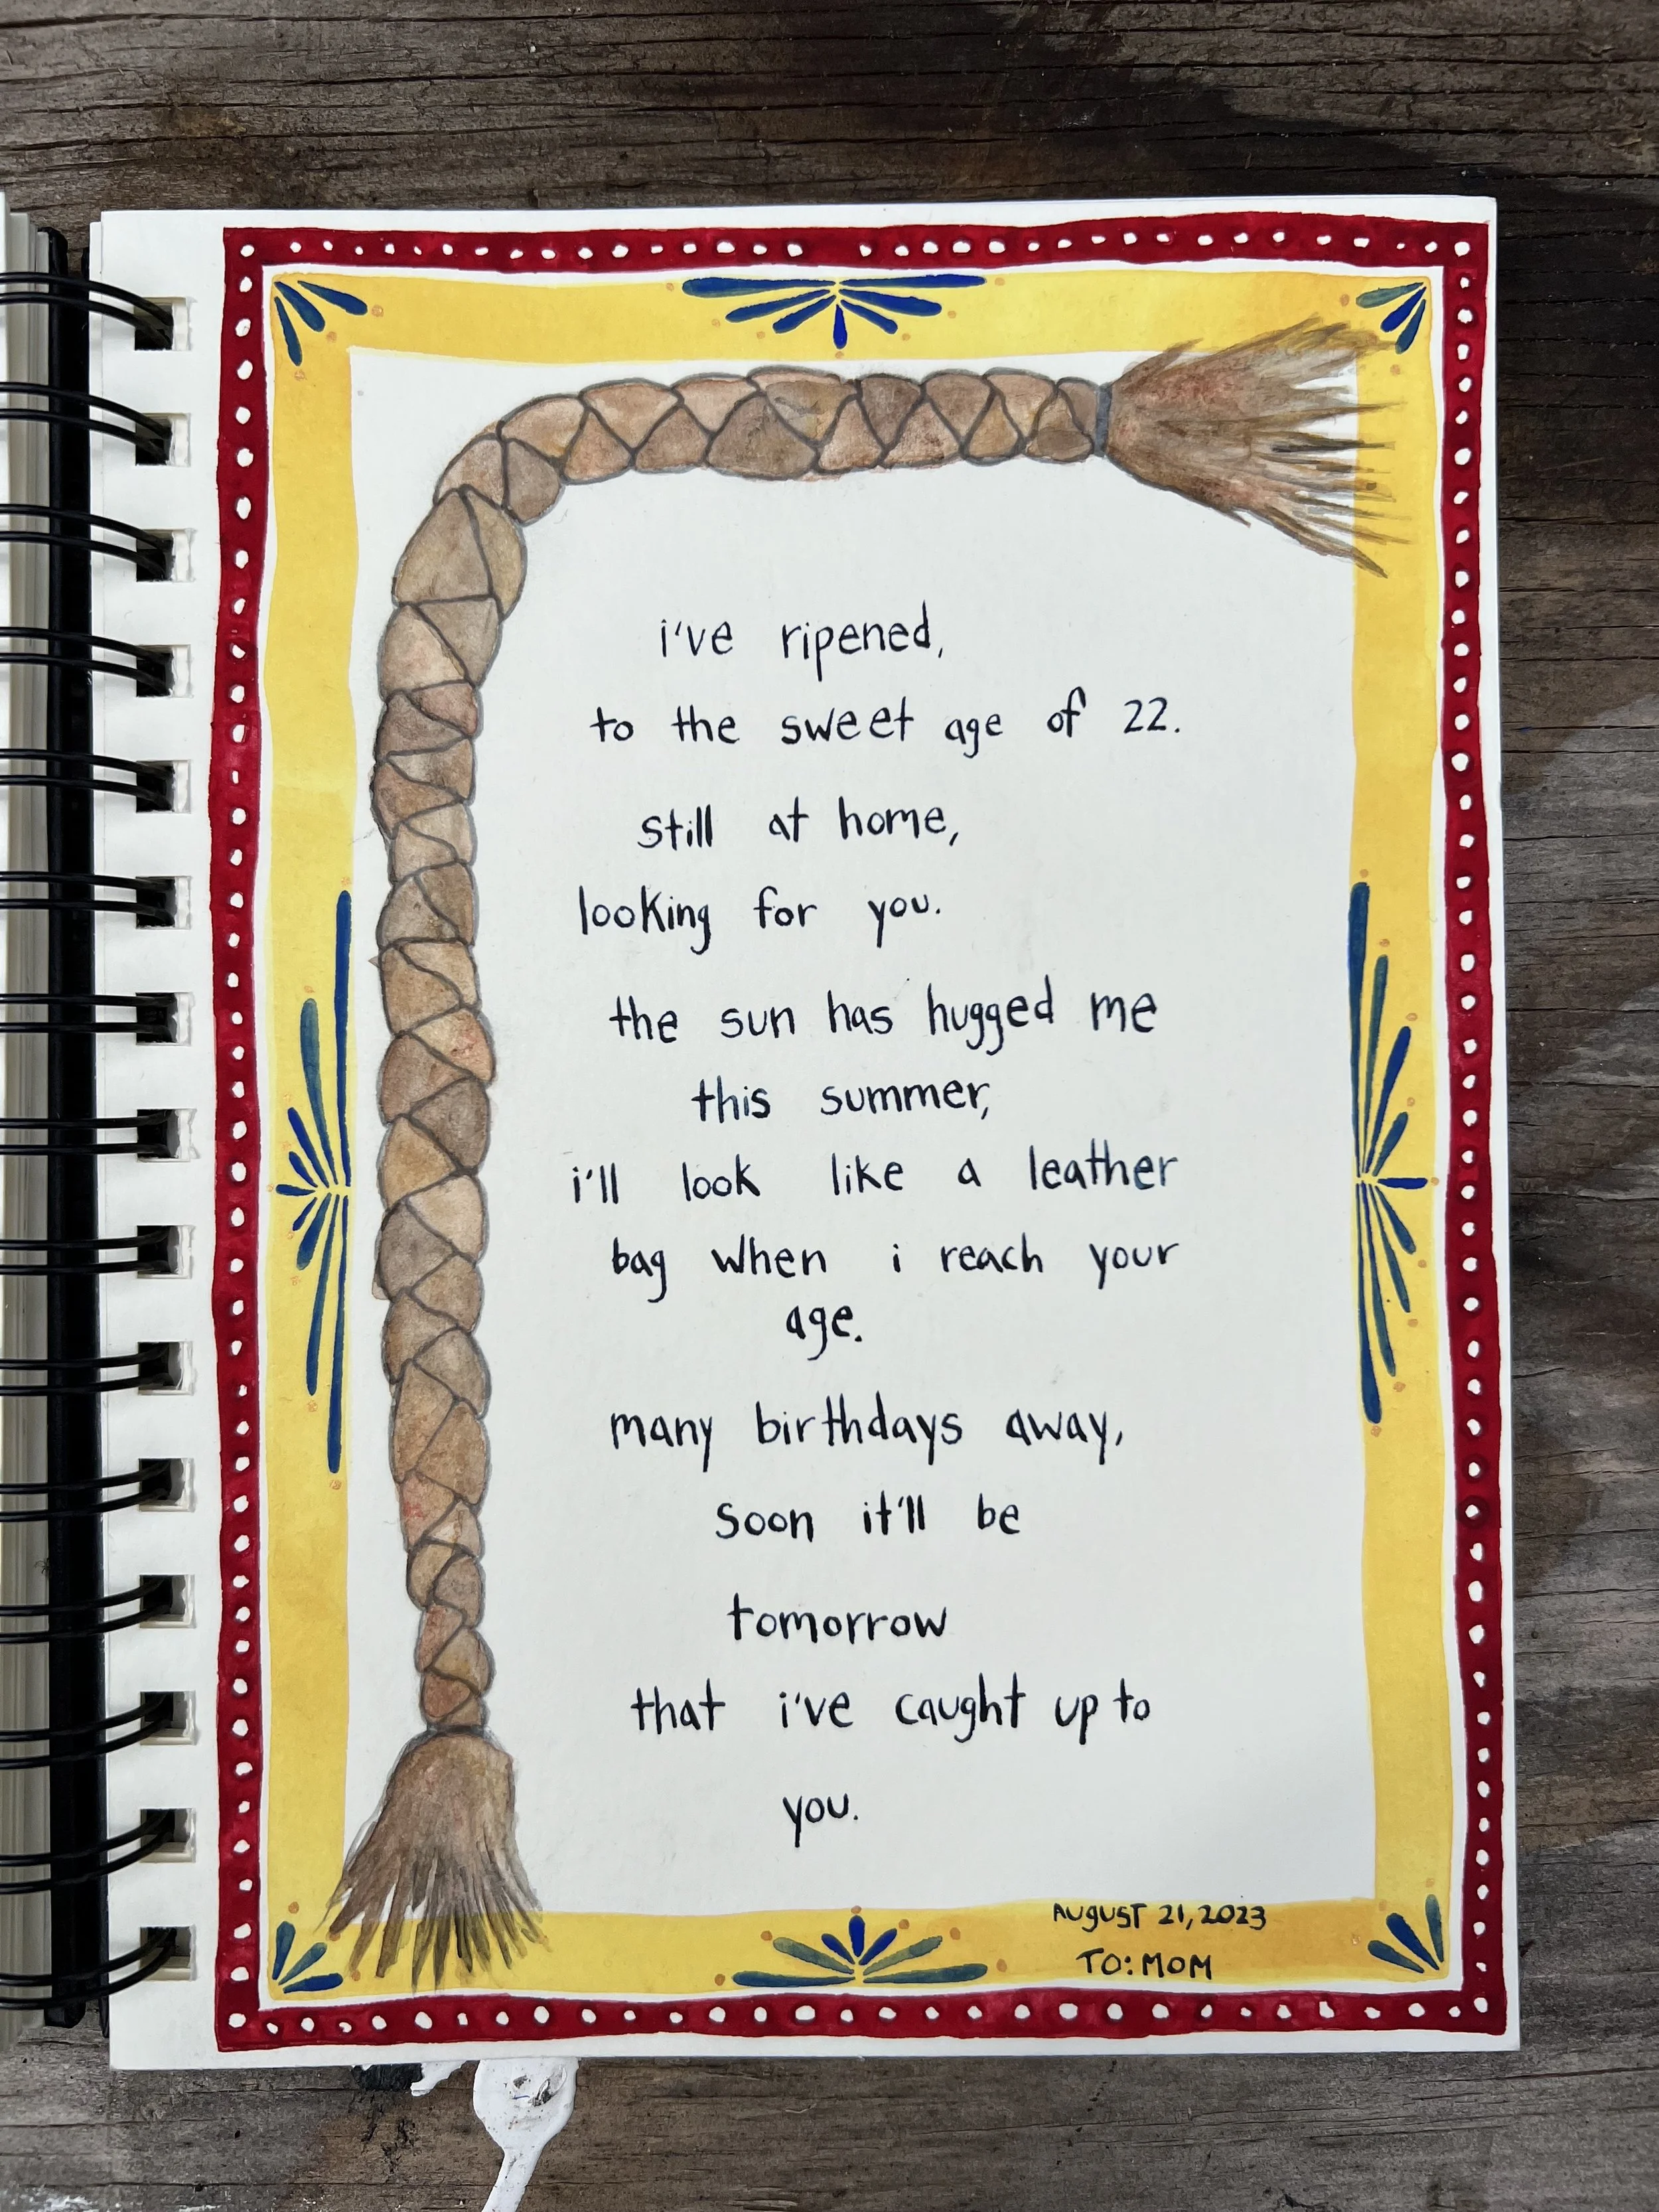 i've ripened,
to the sweet age of 22.
still at home,
looking for you.
the sun has hugged me
this summer,
i'll look like a leather
bag when i reach your
age.
many birthdays away,
soon it'll be
tomorrow
that i've caught up to
you.
AUGUST 21, 2023
TO: MOM